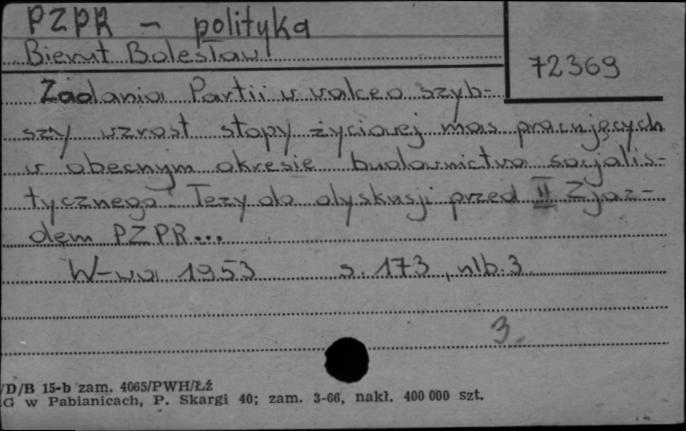 PZPR – polityka
Bierut Bolesław
72369
Zadania Partii w walce o szyb-
szy wzrost stopy życiowej mas pracujących
w obecnym okresie budownictwa socjalis-
tycznego. Tezy do dyskusji przed II Zjaz-
dem PZPR...
W-wa 1953 s. 173, nlb. 3
3.
/D/B 15-b zam. 4065/PWH/Łź
.G w Pabianicach, P. Skargi 40; zam. 3-66, nakł. 400 000 szt.